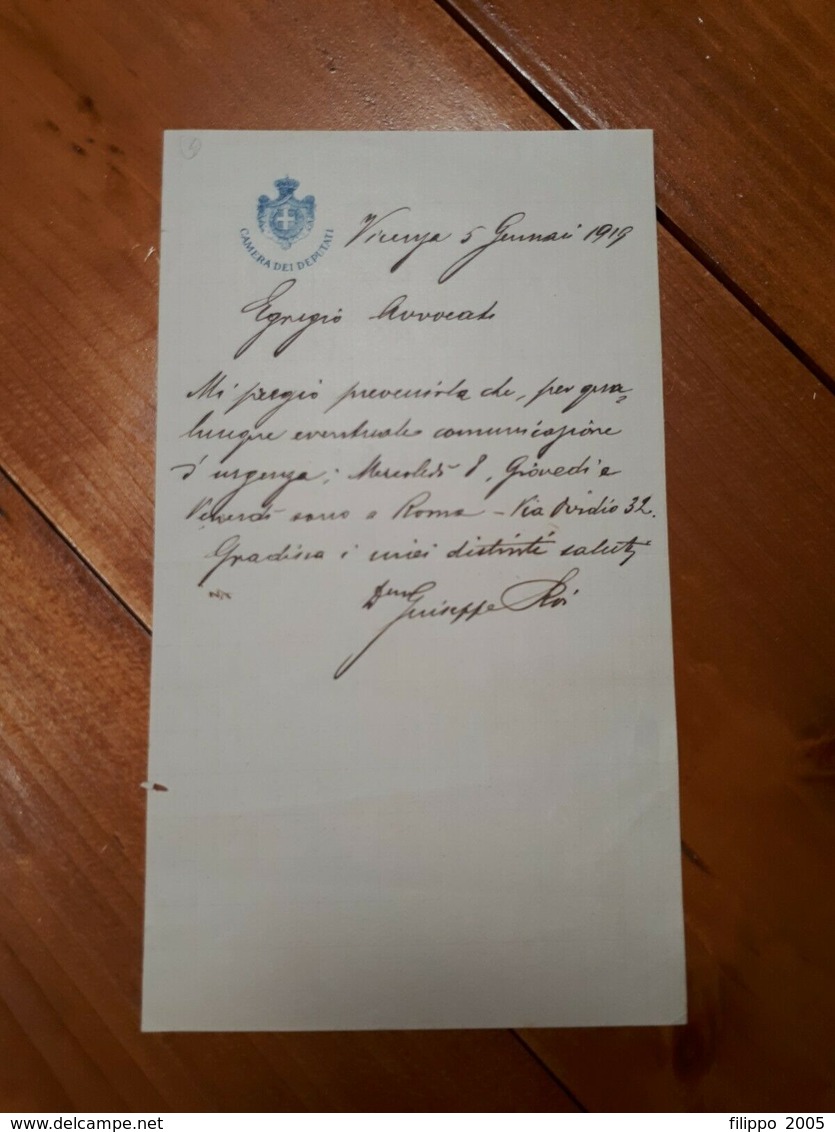 CAMERA DEI DEPUTATI
Vicenza 5 Gennaio 1919
Egregio Avvocato
Mi pregio prevenirla che, per qua=
lunque eventuale comunicazione
d'urgenza, Mercoledì 8, Giovedì e
Venerdì sono a Roma - Via Ovidio 32.
Gradisca i miei distinti saluti
Giuseppe Roi
delcampe.net
filippo_2005